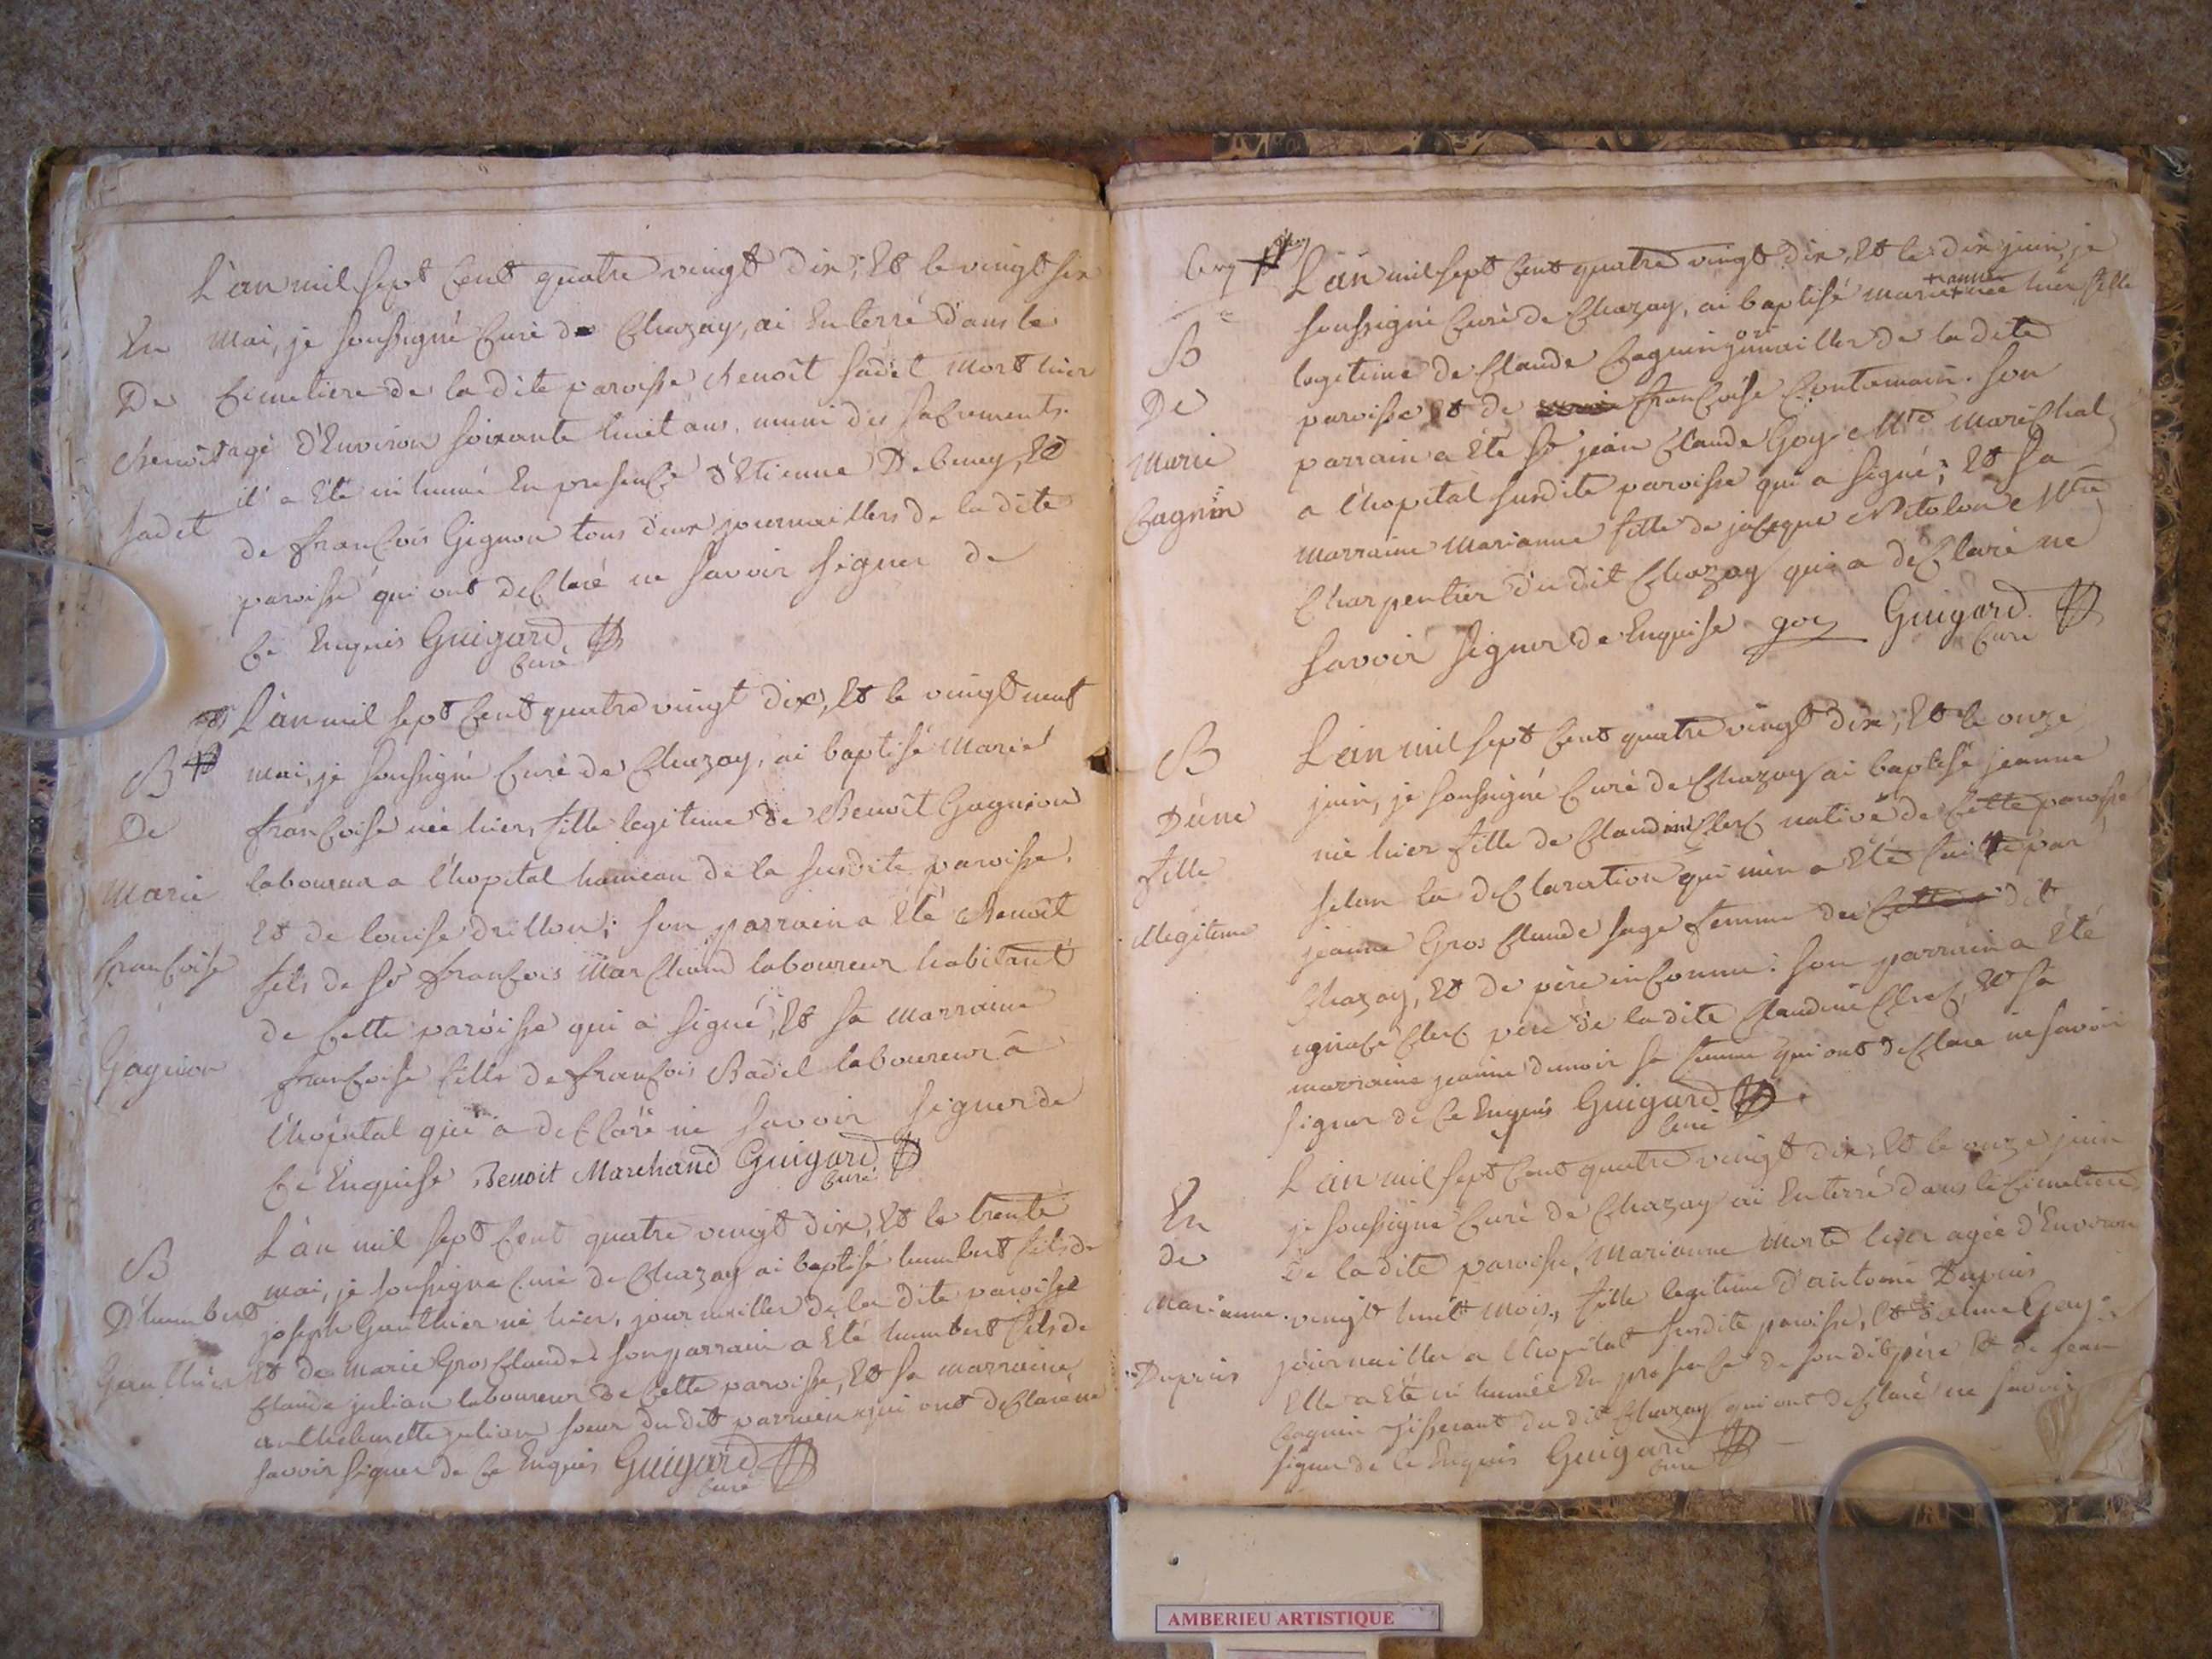 L'an mil sept Cent quatre vingt dix, Et le vingt six
En
mai, je soussigné Curé de Chazay, ai Enterré dans le
De
Cimetiere de la dite paroisse Benoît Sadet mort hier
Benoit
agé d'Environ soixante huit ans, muni des sacrements.
il a Eté inhumé En presence d'Etienne Debeney, Et
Sadet
de francois Gignon tous deux journailliers de la dite
paroisse qui ont declaré ne savoir signer de
Ce Enquis Guigard
Curé
L'an mil sept Cent quatre vingt dix, Et le vingt neuf
B
mai, je soussigné Curé de Chazay, ai baptisé Marie
De
francoise née hier, fille legitime de Benoît Gagnion
Marie
laboureur a l'hopital hameau de la susdite paroisse,
Et de louise drillon; son parrain a Eté Benoît
francoise
fils de Sr francois Marchand laboureur habitant
de Cette paroisse qui a signé, Et sa marraine
Gagnion
francoise fille de francois Badel laboureur a
l'hopital qui a declaré ne savoir signer de
Ce Enquise Benoit Marchand Guigard
Curé
L'an mil sept Cent quatre vingt dix, Et le trente
B
mai, je soussigné Curé de Chazay ai baptisé humbert fils de
D'humbert
joseph Gauthier né hier, journaillier de la dite paroisse
Gauthier
Et de Marie Gros Claude. son parrain a Eté humbert fils de
Claude julian laboureur de Cette paroisse, Et sa marraine
anthelmette julian soeur du dit parrain qui ont declaré ne
savoir signer de Ce Enquis Guigard
Curé
L'an mil sept Cent quatre vingt dix, Et le dix juin, je
anne
soussigné Curé de Chazay, ai baptisé marie née hier fille
B
legitime de Claude Cagnin journaillier de la dite
De
paroisse Et de francoise Contamain. son
Marie
parrain a Eté Sr jean Claude Goy Mtre Marechal
Cagnin
a l'hopital susdite paroisse qui a signé; Et sa
marraine Marianne fille de jacque Mtre
Charpentier du dit Chazay qui a declaré ne
savoir signer de Enquise goy Guigard
Curé
B
L'an mil sept Cent quatre vingt dix, Et le onze
D'une
juin, je soussigné Curé de Chazay ai baptisé jeanne
fille
née hier fille de Claudine Clerc native de Cette paroisse
illegitime
selon la declaration qui m'en a Eté faitte par
jeanne Gros Claude sage femme du dit
Chazay, Et de père inconnu: son parrain a Eté
ignace Clerc père de la dite Claudine Clerc, Et sa
marraine jeanne dunoir sa femme qui ont declaré ne savoir
signer de Ce Enquis Guigard
Curé
L'an mil sept Cent quatre vingt dix, Et le onze juin
En
je soussigné Curé de Chazay ai Enterré dans le Cimetiere
de
De la dite paroisse, Marianne Morte hier agée d'Environ
Marianne
vingt huit mois, fille legitime d'antoine Dupuis
Dupuis
journaillier a l'hopital susdite paroisse, Et d'anne Goy.
Elle a Eté inhumée En presence de son dit père Et de jean
Cagnin tisserant du dit Chazay qui ont declaré ne savoir
signer de Ce Enquis Guigard
Curé
AMBERIEU ARTISTIQUE